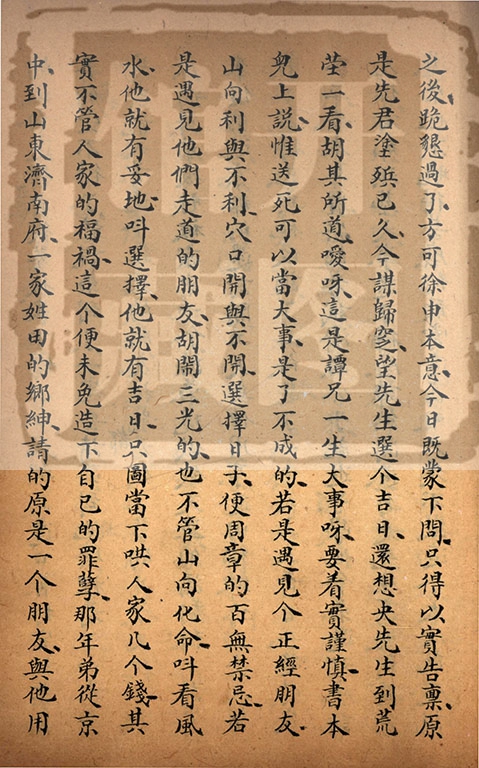 之後、跪懇過了、方可徐申本意、今日既蒙下問、只得以實告稟、原
是先君塗殯已久、今謀歸窆、望先生選个吉日、還想央先生到荒
塋一看、胡其所道、噯呀、這是譚兄一生大事呀、要着實謹慎、書本
兒上說、惟送死可以當大事、是了不成的、若是遇見个正經朋友、
山向利與不利、穴口開與不開、選擇日子、便周章的百無禁忌、若
是遇見他們走道的朋友、胡鬧三光的、也不管山向化命、呌看風
水、他就有妥地、呌選擇、他就有吉日、只圖當下哄人家几个錢、其
實不管人家的福禍、這个便未免造下自己的罪孽、那年弟從京
中、到山東濟南府、一家姓田的鄉紳、請的原是一个朋友、與他用